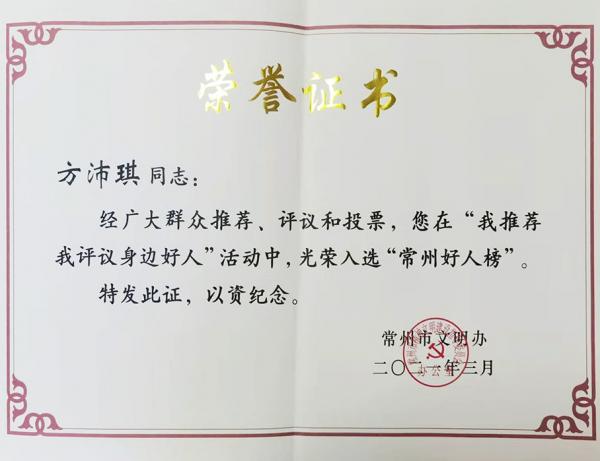 荣誉证书
方沛琪 同志：
经广大群众推荐、评议和投票，您在“我推荐
我评议身边好人”活动中，光荣入选“常州好人榜”。
特发此证，以资纪念。
常州市文明办
二〇二一年三月
办公室